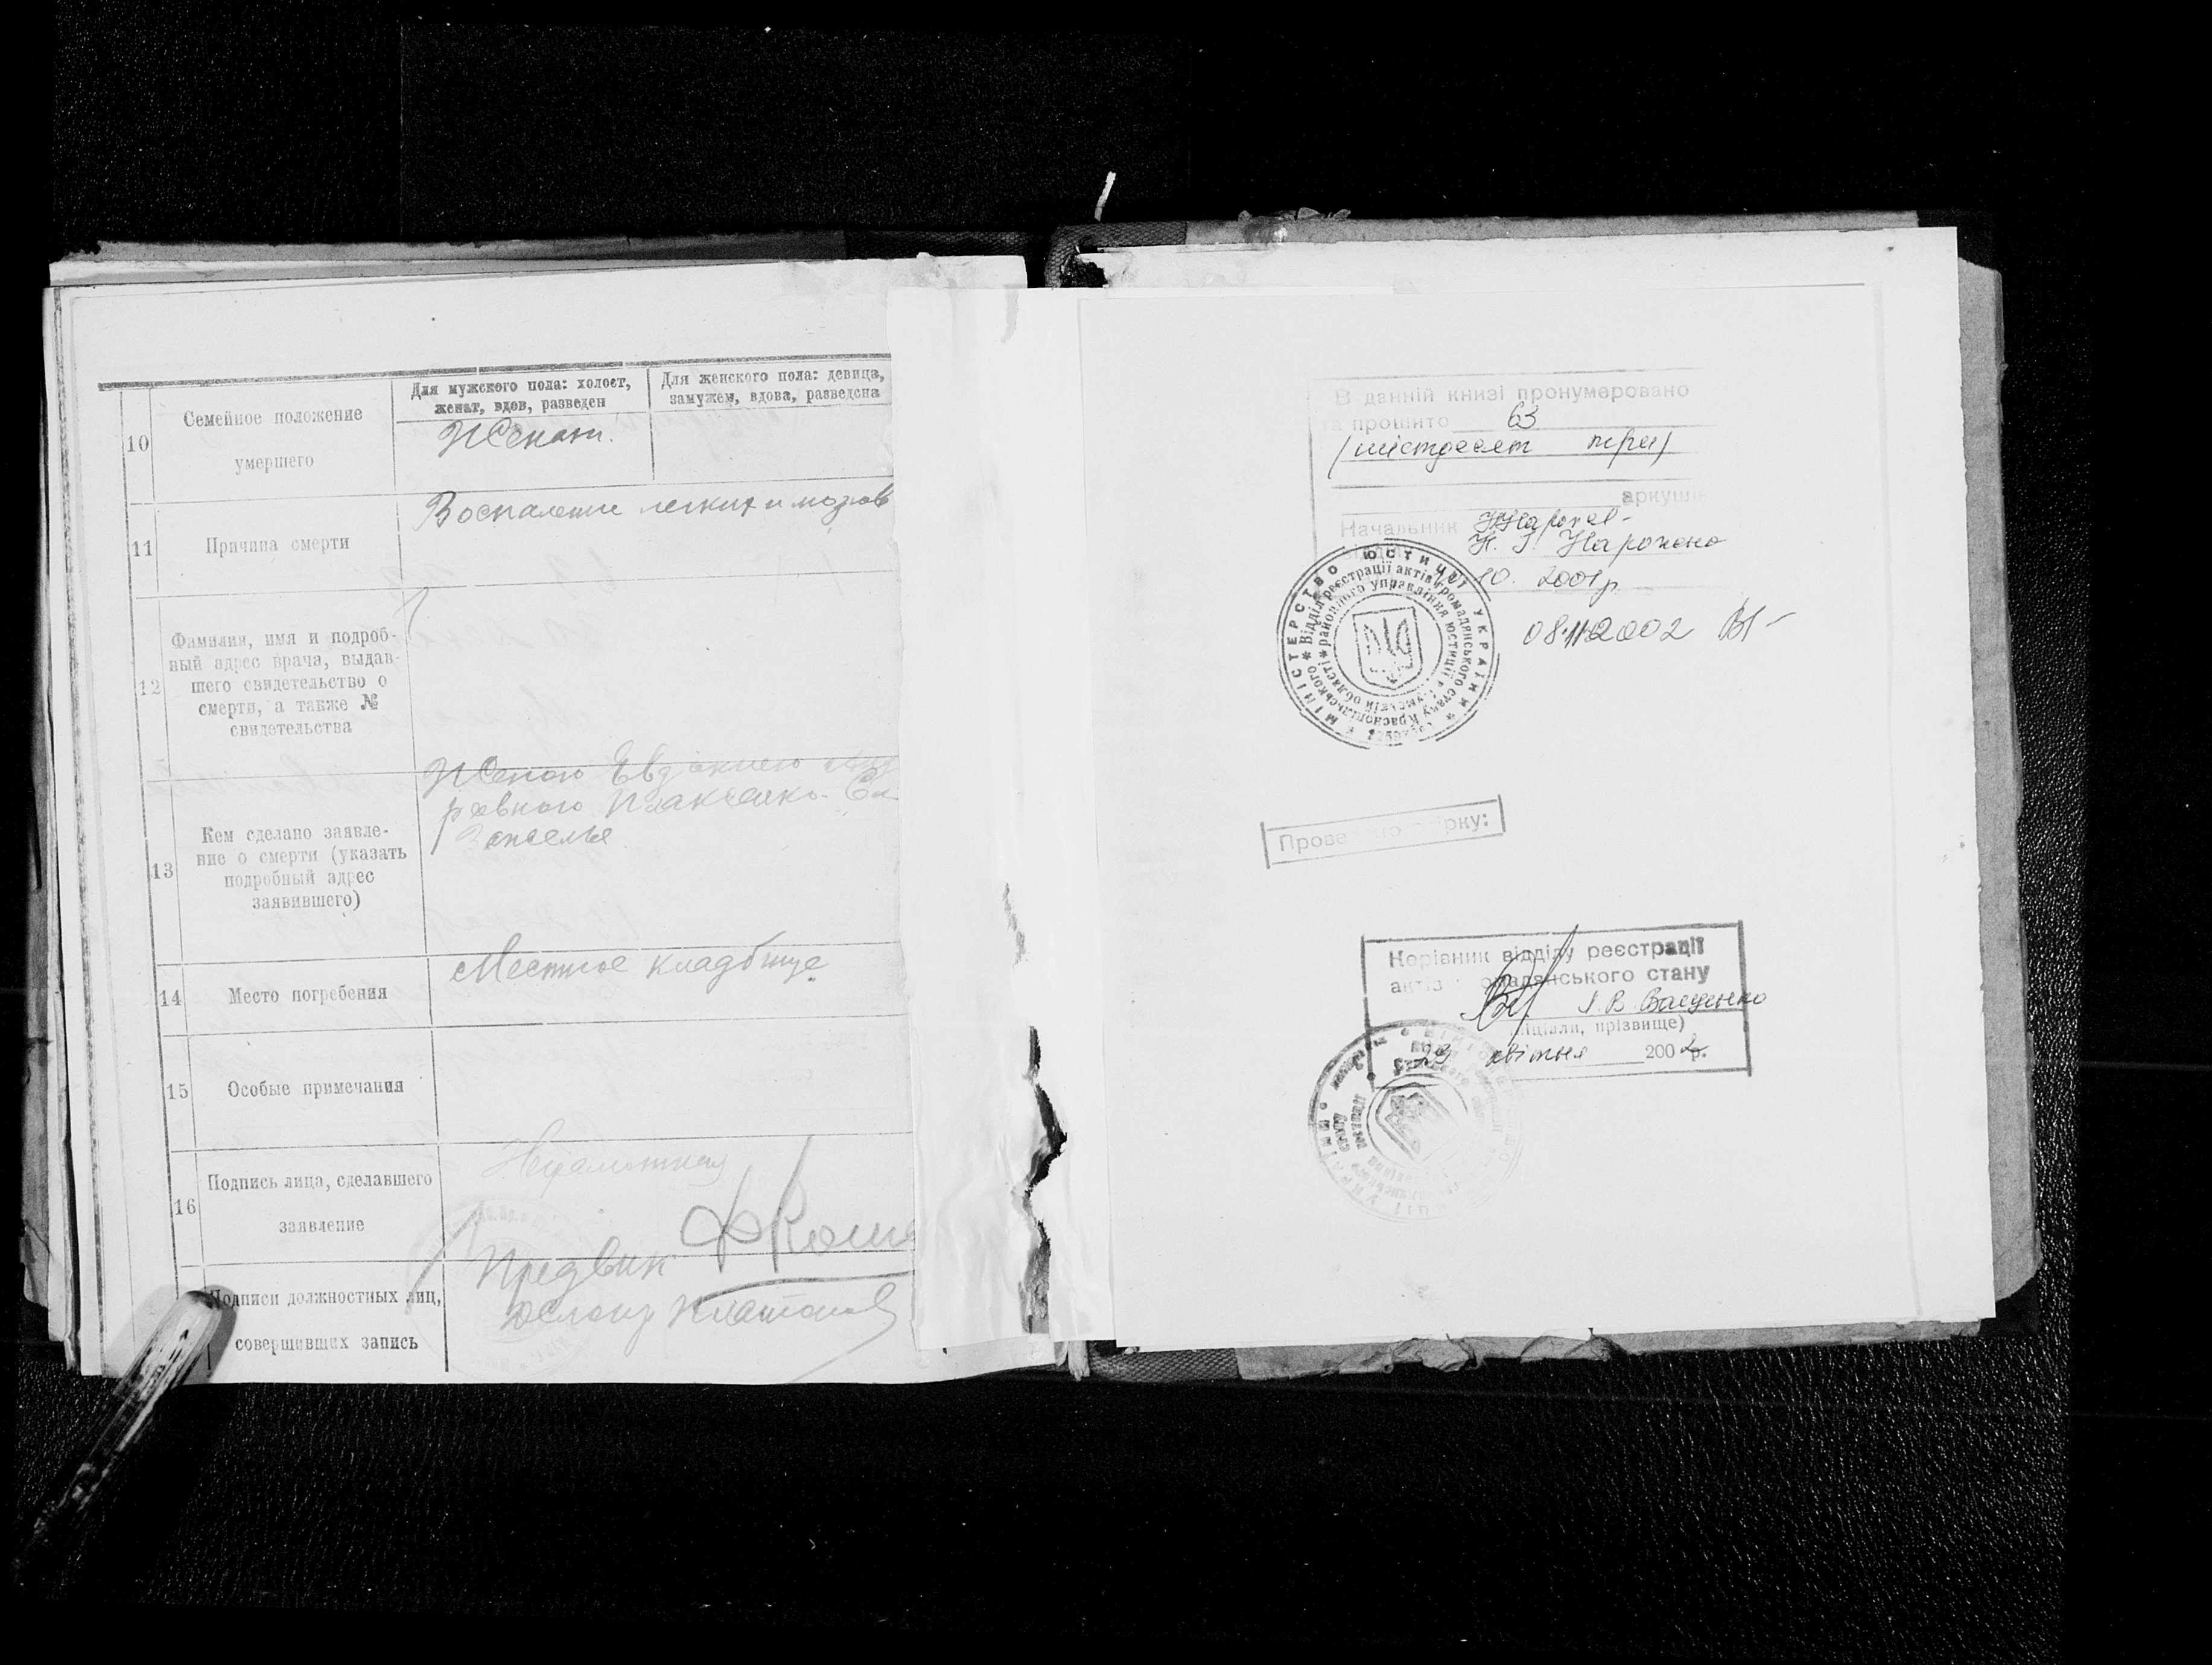 Для мужского пола: холост,
женат, вдов, разведен
Для женского пола: девица,
замужем, вдова, разведена
10
Семейное положение
умершего
Женат.
11
Причина смерти
Воспаление легких и мозгов
12
Фамилия, имя и подроб-
ный адрес врача, выдав-
шего свидетельство о
смерти, а также №
свидетельства
13
Кем сделано заявле-
ние о смерти (указать
подробный адрес
заявившего)
Женою Евдокиею
14
Место погребения
Местное кладбище
15
Особые примечания
16
Подпись лица, сделавшего
заявление
Неграмотная
Подписи должностных лиц,
совершивших запись
Предвик
В данній книзі пронумеровано
та прошито 63
(шістдесят три)
аркушів
Начальник
10. 2001р.
08.11.2002
МІНІСТЕРСТВО ЮСТИЦІЇ УКРАЇНИ
Відділ реєстрації актів громадянського стану Краснопільського
районного управління юстиції Сумській області
Проведено звірку:
Керівник відділу реєстрації
актів громадянського стану
І.В. Ващенко
(ініціали, прізвище)
29 квітня 2002 р.